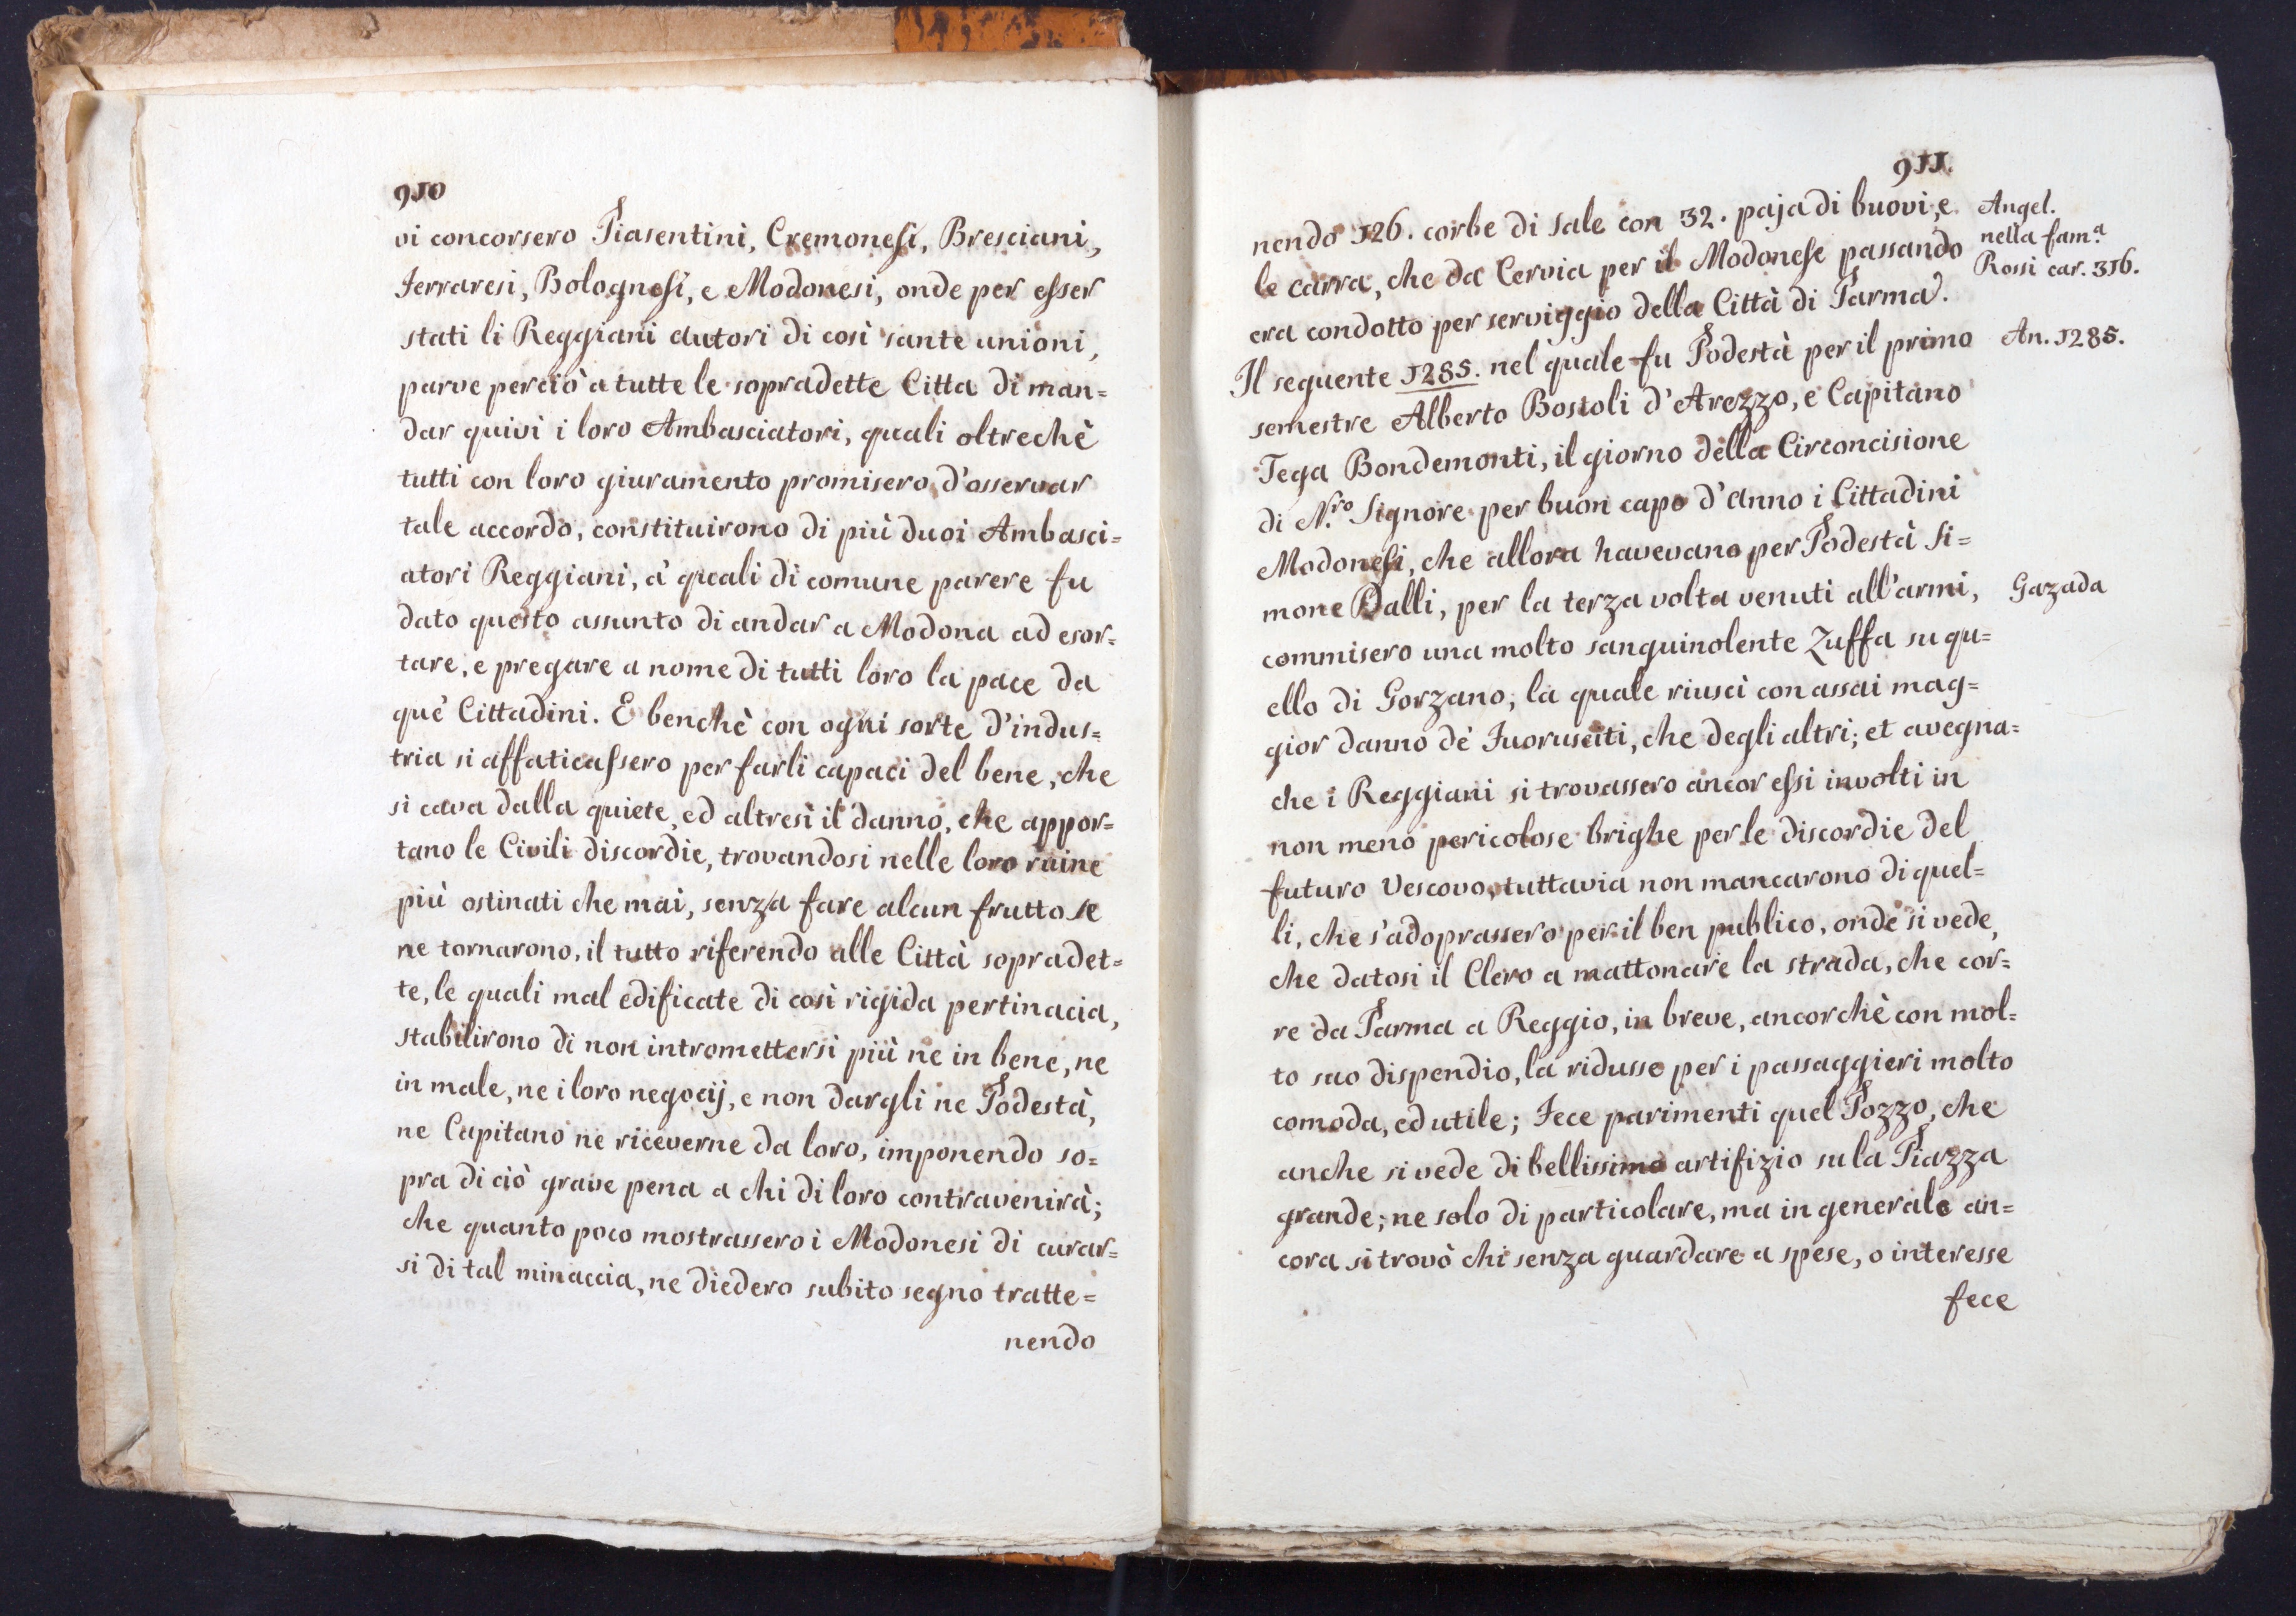 910
vi concorsero Piasentini, Cremonesi, Bresciani,
Ferraresi, Bolognesi, e Modonesi, onde per esser
stati li Reggiani autori di così sante unioni,
parve perciò a tutte le sopradette Citta di man=
dar quivi i loro Ambasciatori, quali oltrechè
tutti con loro giuramento promisero d'osservar
tale accordo, constituirono di più duoi Ambasci=
atori Reggiani, a' quali di comune parere fu
dato questo assunto di andar a Modona ad esor=
tare, e pregare a nome di tutti loro la pace da
què Cittadini. E benchè con ogni sorte d'indus=
tria si affaticassero per farli capaci del bene, che
si cava dalla quiete, ed altresì il danno, che appor=
tano le Civili discordie, trovandosi nelle loro ruine
più ostinati che mai, senza fare alcun frutto se
ne tornarono, il tutto riferendo alle Città sopradet=
te, le quali mal edificate di così rigida pertinacia,
stabilirono di non intromettersi più ne in bene, ne
in male, ne i loro negocij, e non dargli ne Podestà,
ne Capitano ne riceverne da loro, imponendo so=
pra di ciò grave pena a chi di loro contravenirà;
che quanto poco mostrassero i Modonesi di curar=
si di tal minaccia, ne diedero subito segno tratte=
nendo
911.
nendo 126. corbe di sale con 32. paja di buovi, e
le carra, che da Cervia per il Modonese passando
era condotto per serviggio della Città di Parma.
Angel.
nella fam.a
Rossi car. 316.
Il seguente 1285. nel quale fu Podestà per il primo
An. 1285.
semestre Alberto Bostoli d'Arezzo, e Capitano
Tega Bondemonti, il giorno della Circoncisione
di N.ro Signore per buon capo d'anno i Cittadini
Modonesi, che allora havevano per Podestà Si=
mone Dalli, per la terza volta venuti all'armi,
Gazada
commisero una molto sanguinolente Zuffa su qu=
ello di Gorzano, la quale riuscì con assai mag=
gior danno dè Fuorusciti, che degli altri; et avegna=
che i Reggiani si trovassero ancor essi involti in
non meno pericolose brighe per le discordie del
futuro Vescovo, tuttavia non mancarono di quel=
li, che s'adoprassero per il ben publico, onde si vede,
che datosi il Clero a mattonare la strada, che cor=
re da Parma a Reggio, in breve, ancorchè con mol=
to suo dispendio, la ridusse per i passaggieri molto
comoda, ed utile; Fece parimenti quel Pozzo, che
anche si vede di bellissimo artifizio su la Piazza
grande; ne solo di particolare, ma in generale an=
cora si trovò chi senza guardare a spese, o interesse
fece